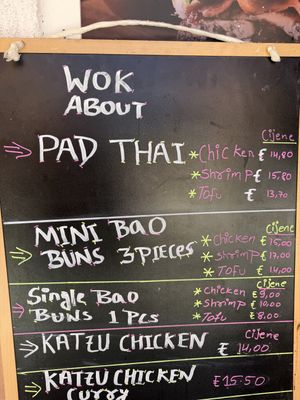 WOK
ABOUT
Cijene
PAD THAI
*Chicken € 14,80
*Shrimp € 15,80
*Tofu € 13,70
MINI BAO
BUNS 3 PIECES
Cijene
*Chicken € 15,00
*Shrimp € 17,00
*TOFU € 14,00
Single Bao
BUNS 1 Pcs
Cijene
*Chicken € 9,00
*Shrimp € 10,00
*Tofu € 8.00
KATZU CHICKEN
Cijene
€ 14,00
KATZU CHICKEN
Curry
€ 15.50